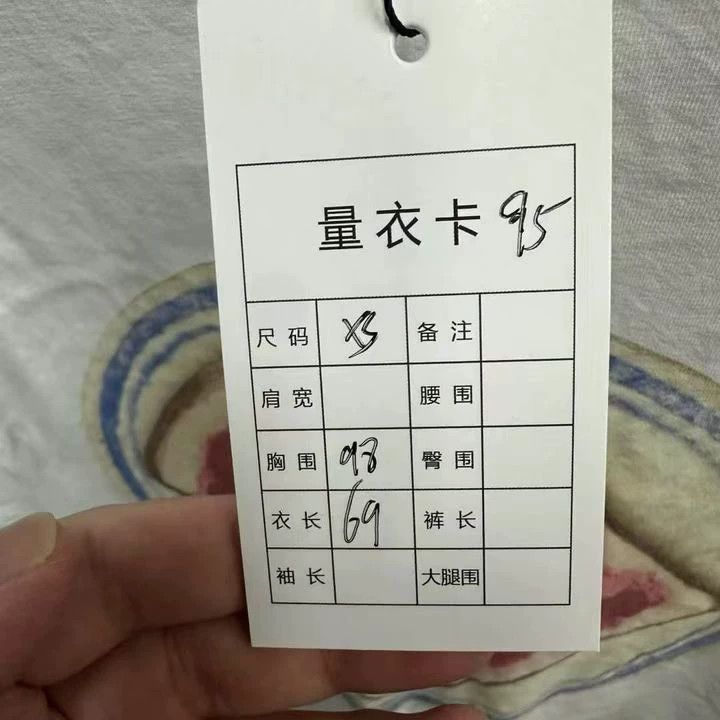 量衣卡 95
尺码 XS 备注
肩宽 腰围
胸围 98 臀围
衣长 69 裤长
袖长 大腿围